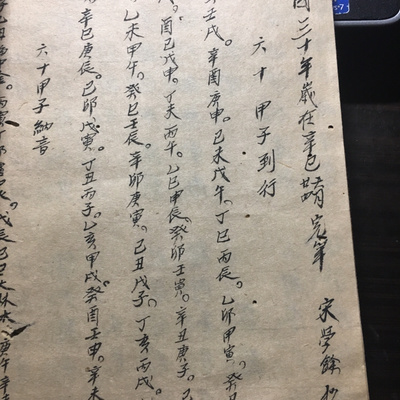 國三十年歲在辛巳 完筆 宋學餘
六十甲子到行
壬戌。辛酉庚申。己未戊午。丁巳丙辰。乙卯甲寅。癸丑
酉己戊申。丁未丙午。乙巳甲辰。癸卯壬寅。辛丑庚子。己
乙未甲午。癸巳壬辰。辛卯庚寅。己丑戊子。丁亥丙戌。
辛巳庚辰。己卯戊寅。丁丑丙子。乙亥甲戌。癸酉壬申。辛未
六十甲子納音
戊辰己巳大林木。庚午辛